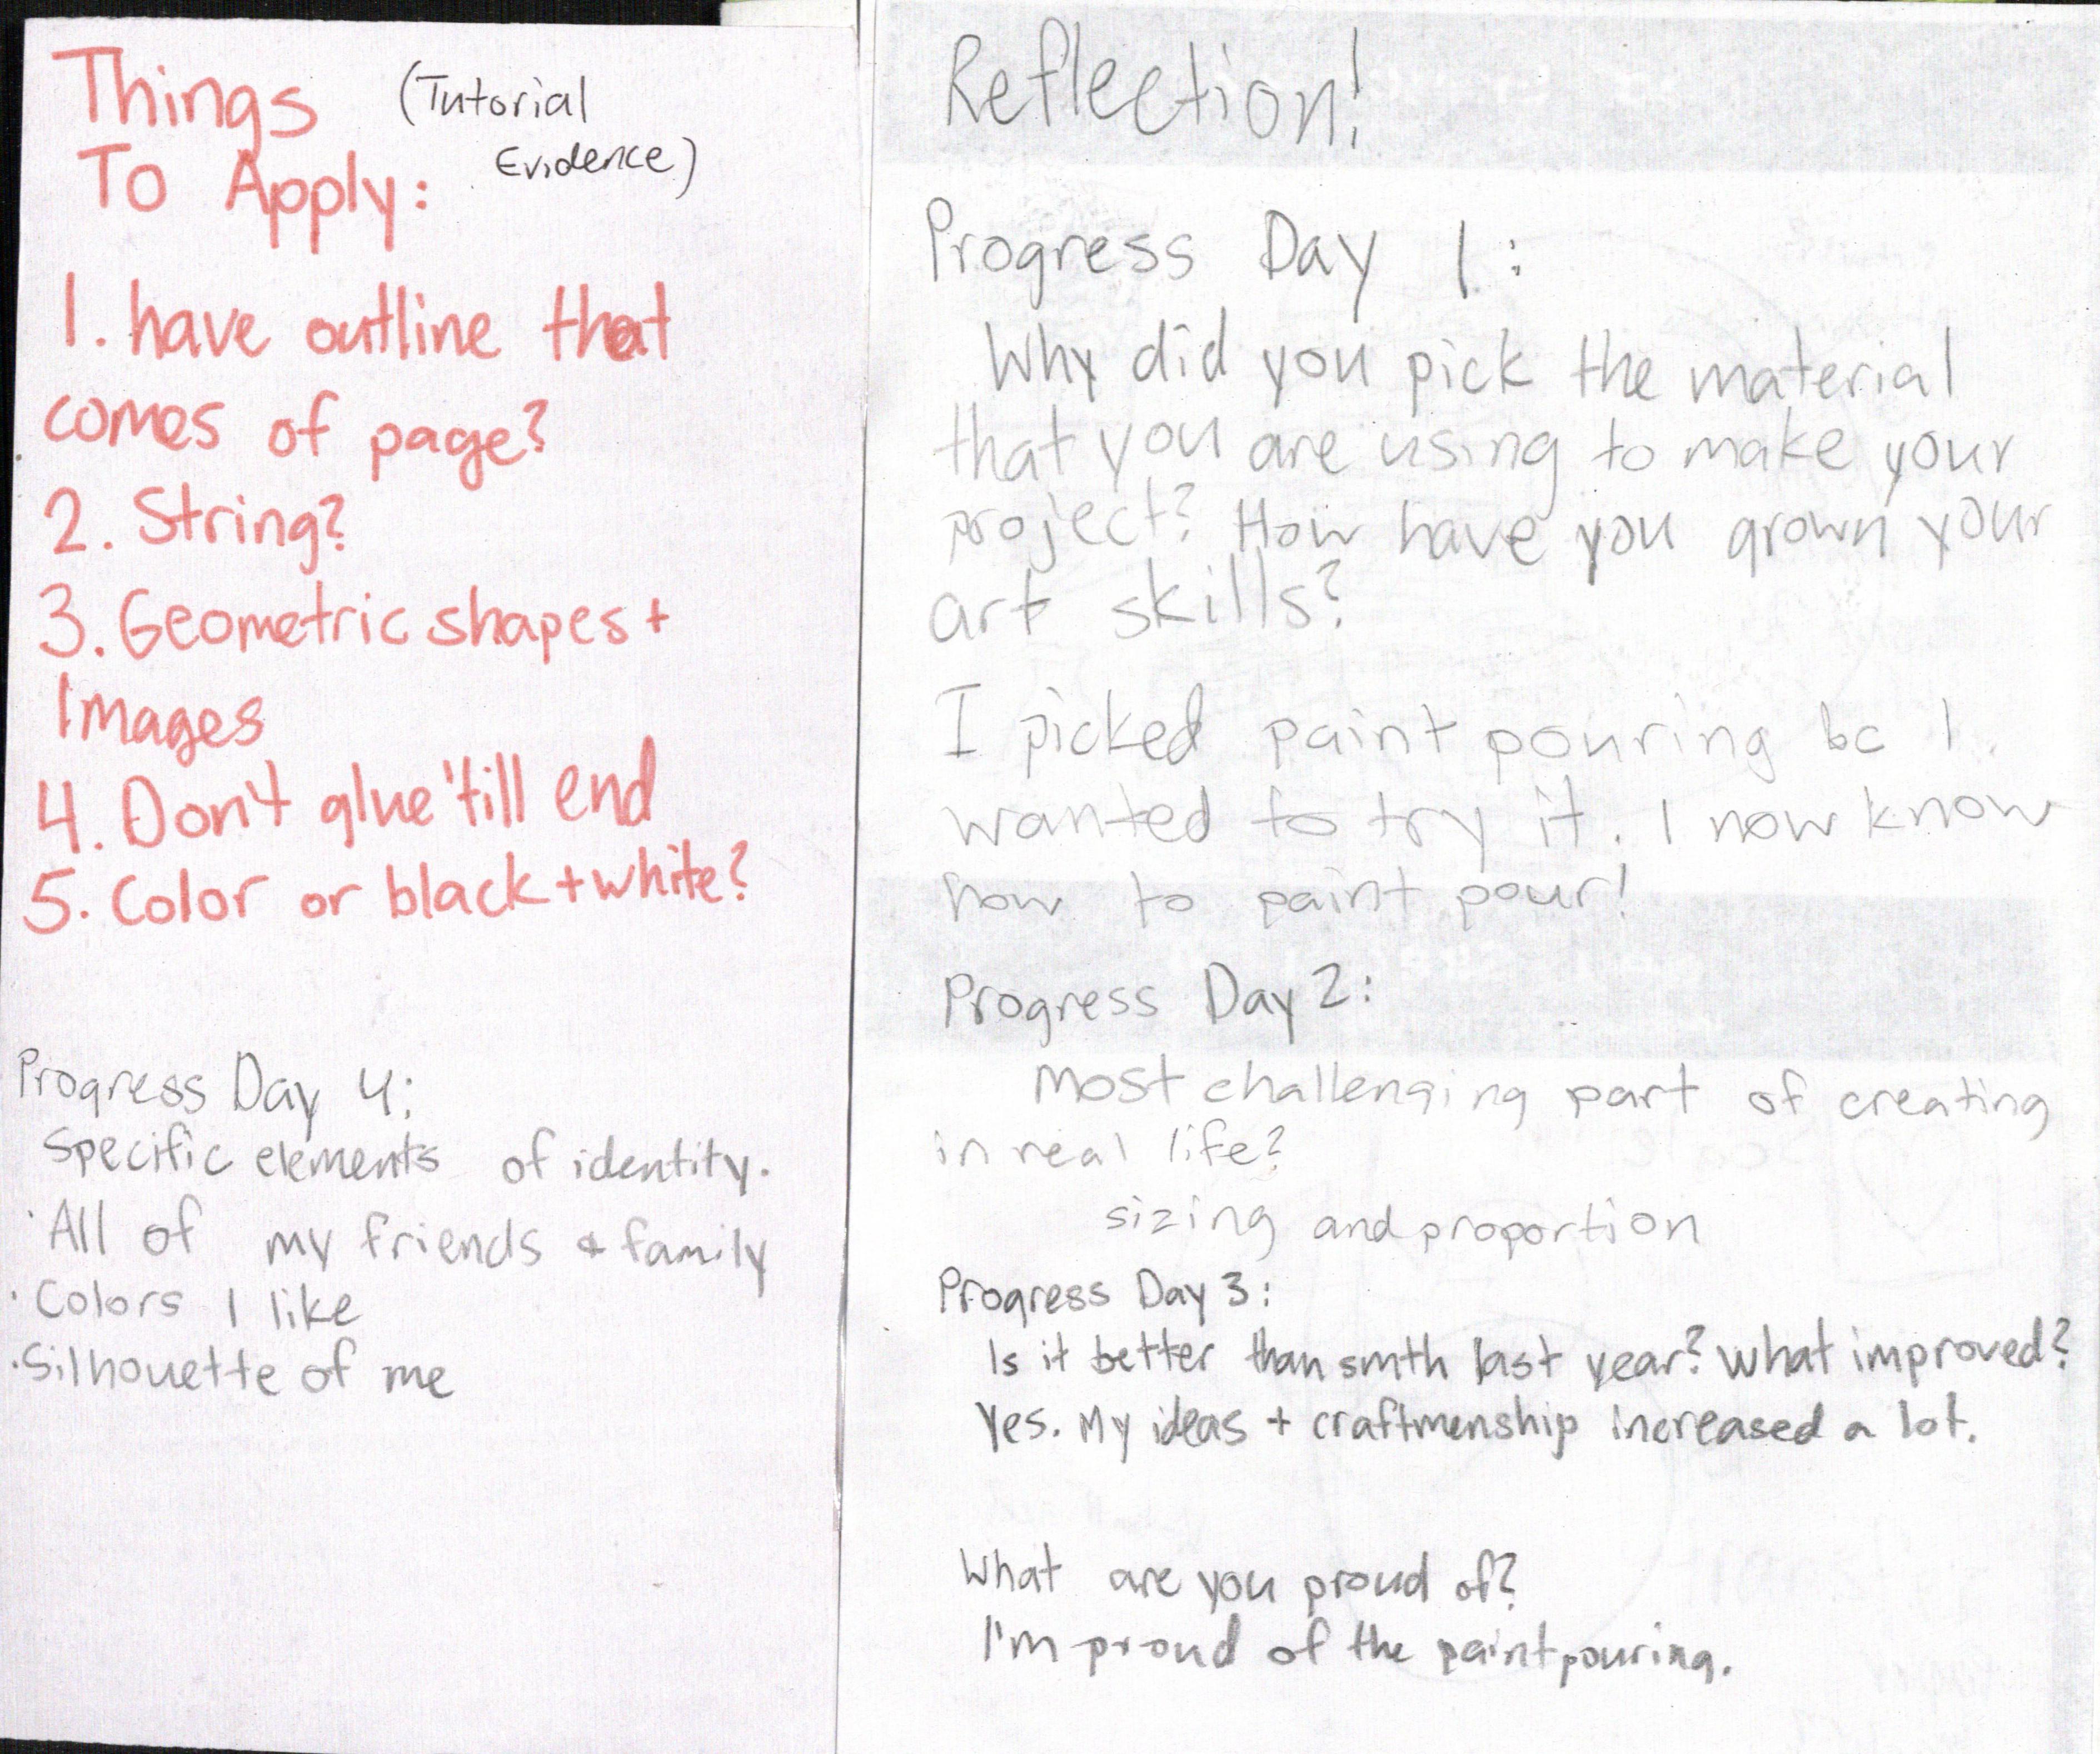 Things (Tutorial
To Apply: Evidence)
1. have outline that
comes of page?
2. String?
3. Geometric shapes +
Images
4. Don't glue 'till end
5. Color or black + white?
Progress Day 4:
Specific elements of identity.
· All of my friends & family
· Colors I like
· Silhouette of me
Reflection!
Progress Day 1:
Why did you pick the material
that you are using to make your
project? How have you grown your
art skills?
I picked paint pouring bc I
wanted to try it. I now know
how to paint pour!
Progress Day 2:
Most challenging part of creating
in real life?
sizing and proportion
Progress Day 3:
Is it better than smth last year? What improved?
Yes. My ideas + craftmenship increased a lot.
What are you proud of?
I'm proud of the paint pouring.